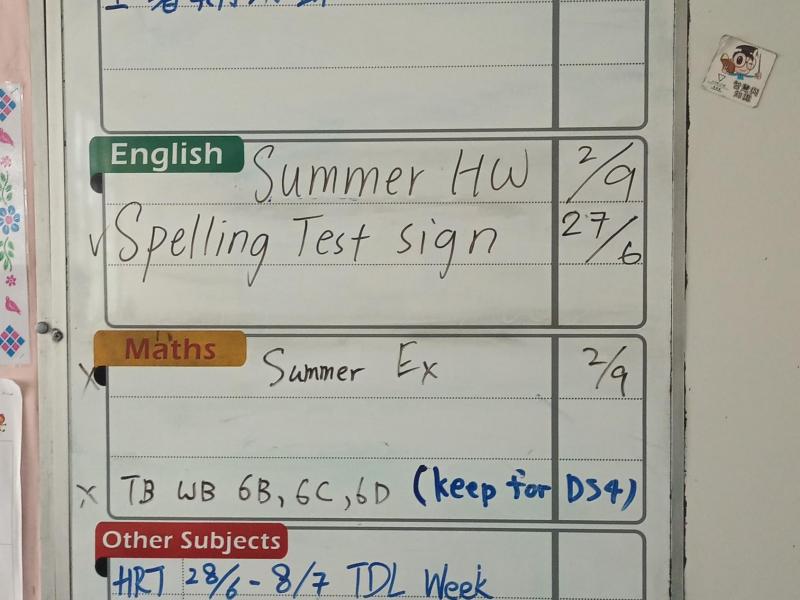 English
Summer HW 2/9
Spelling Test sign 27/6
Maths
Summer Ex 2/9
TB WB 6B, 6C, 6D (keep for DS4)
Other Subjects
HRT 28/6 - 8/7 TDL Week